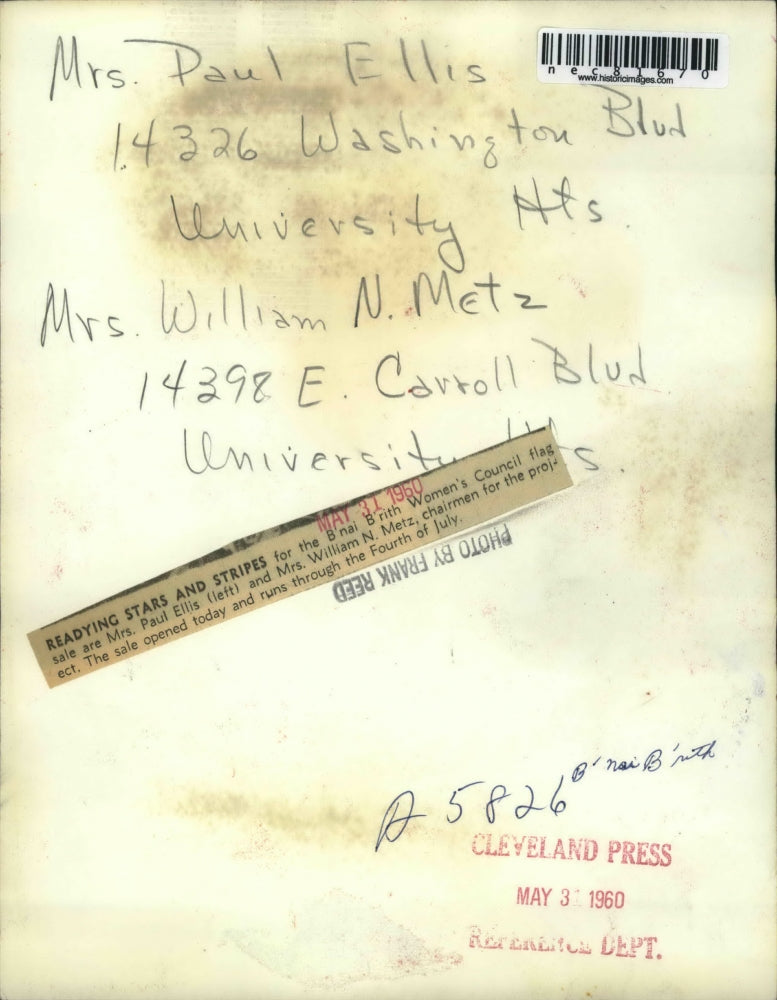 nec81670
www.historicimages.com
Mrs. Paul Ellis
14326 Washington Blvd
University Hts.
Mrs. William N. Metz
14398 E. Carroll Blvd
University Hts.
MAY 31 1960
READYING STARS AND STRIPES for the B'nai B'rith Women's Council flag
sale are Mrs. Paul Ellis (left) and Mrs. William N. Metz, chairmen for the proj-
ect. The sale opened today and runs through the Fourth of July.
PHOTO BY FRANK REED
B'nai B'rith
A 5826
CLEVELAND PRESS
MAY 31 1960
REFERENCE DEPT.